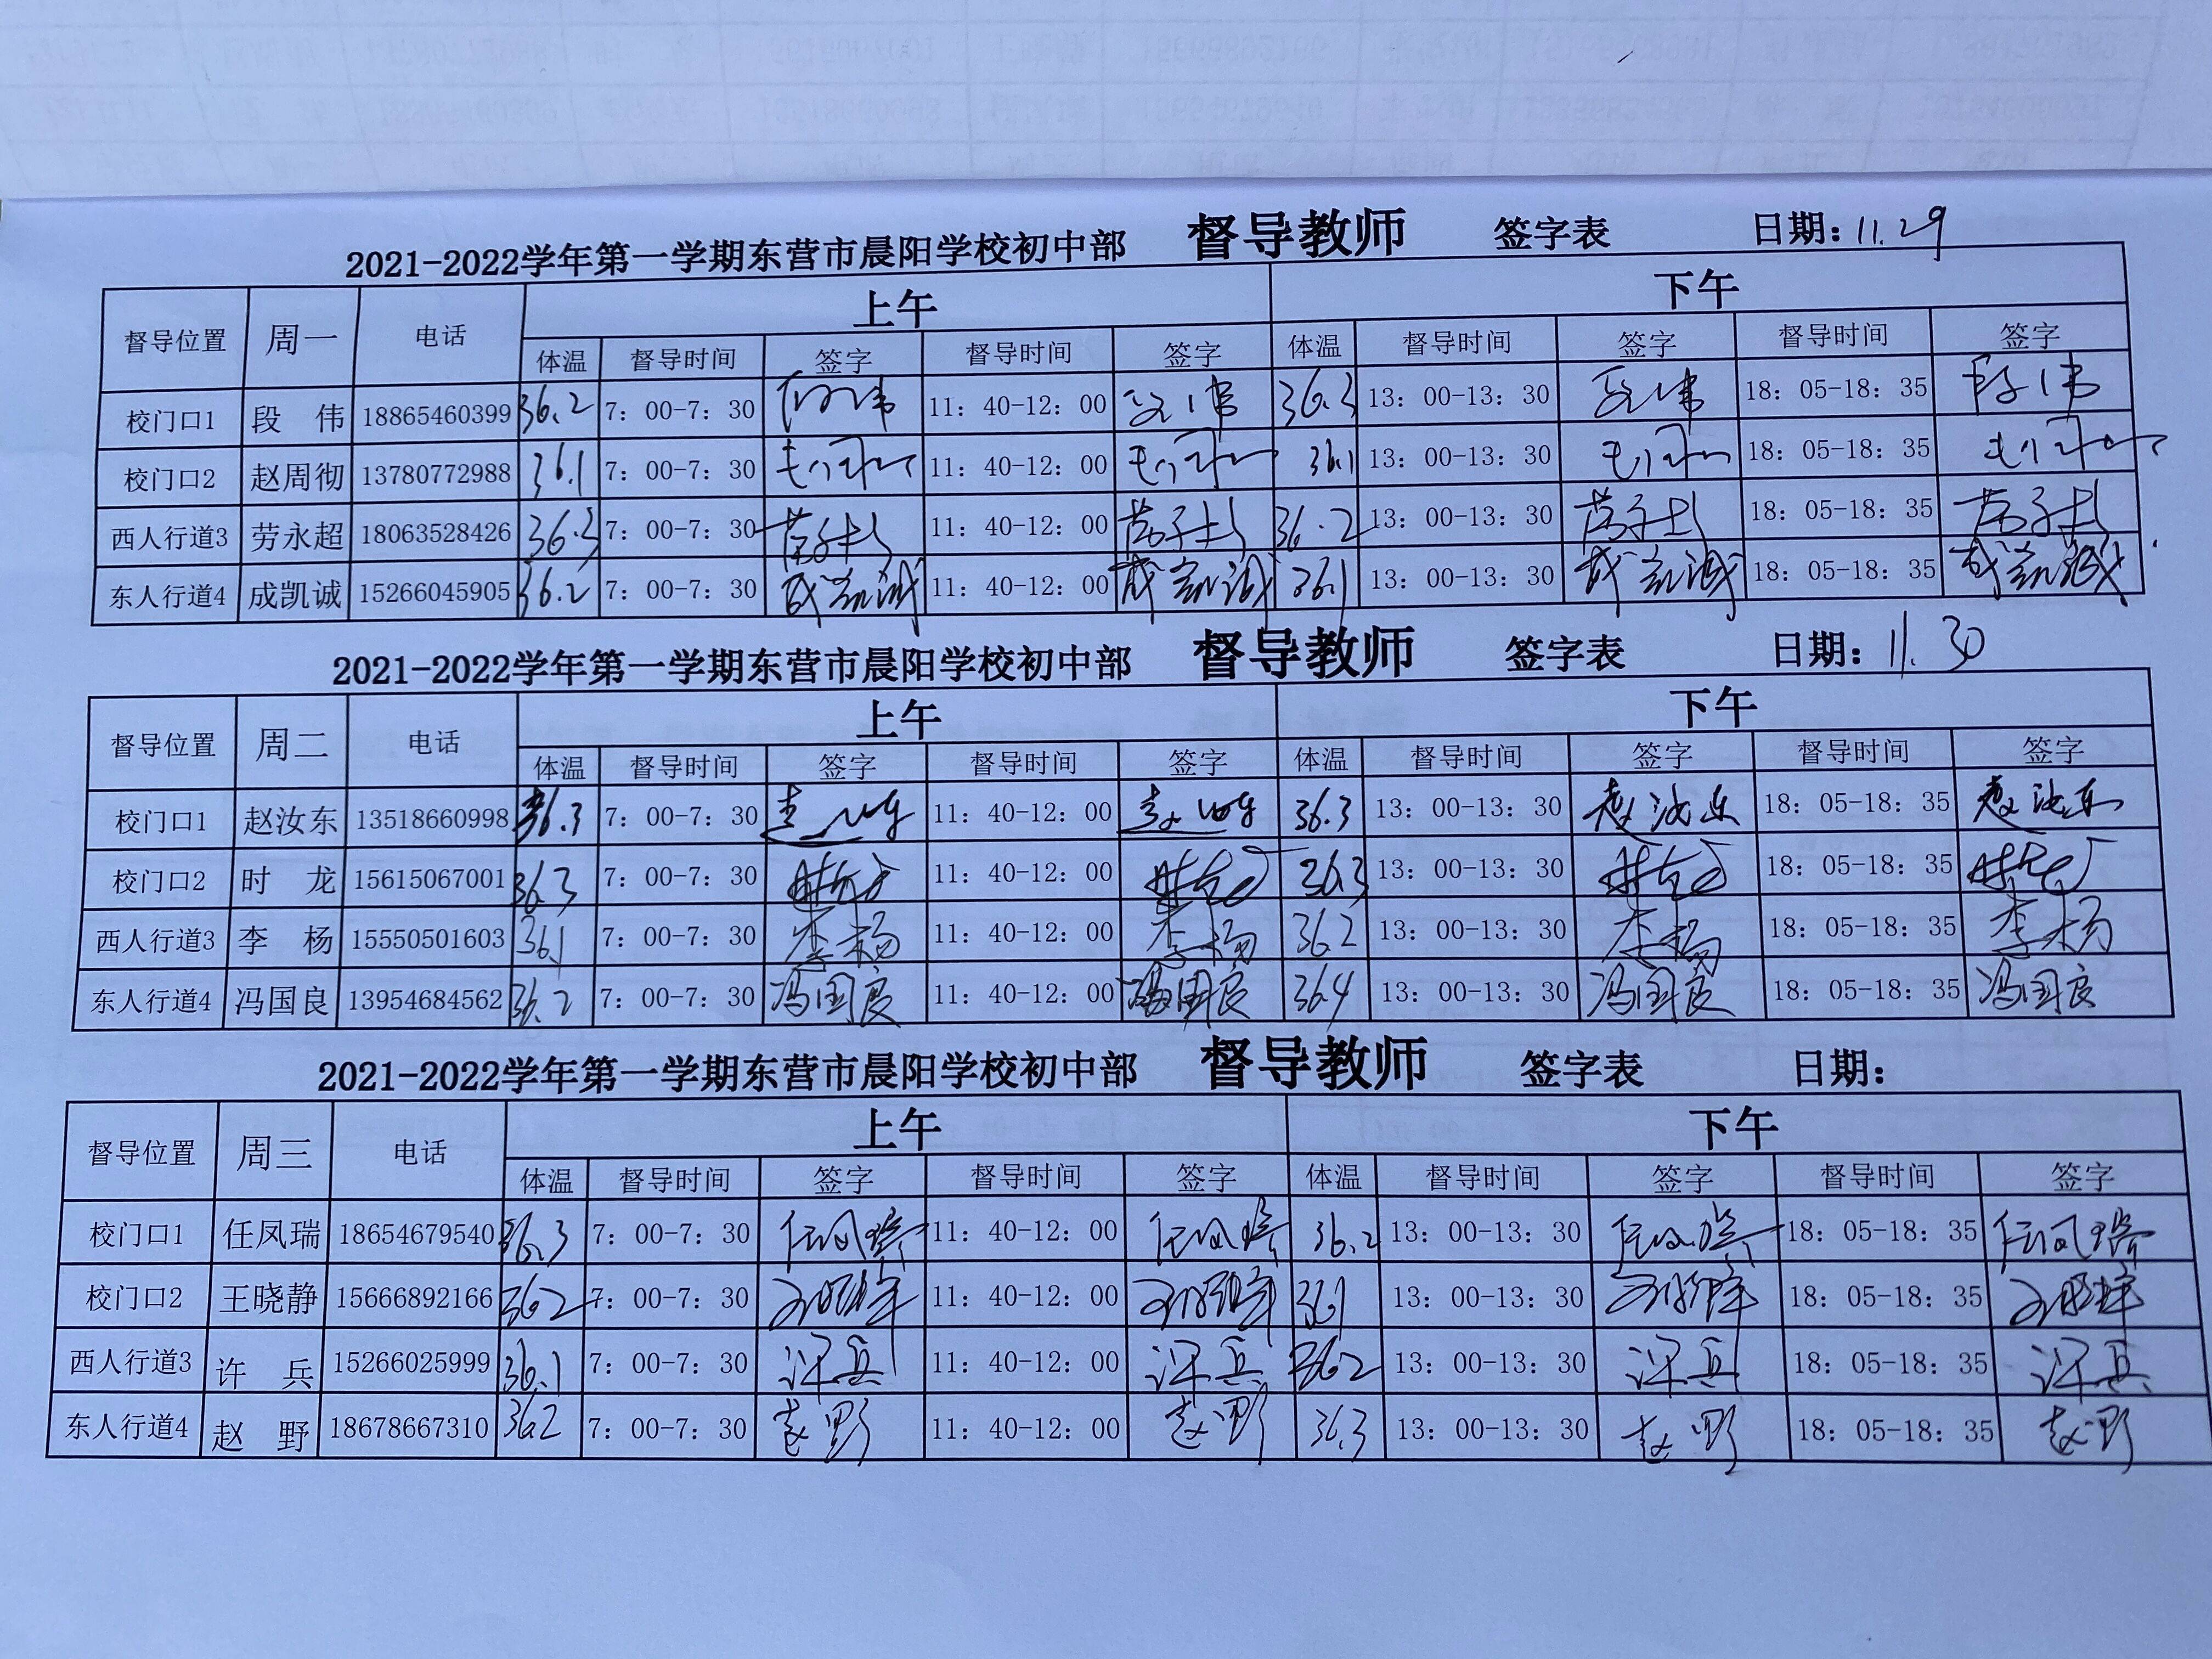 2021-2022学年第一学期东营市晨阳学校初中部 督导教师 签字表 日期: 11.29
督导位置 周一 电话 上午 下午
体温 督导时间 签字 督导时间 签字 体温 督导时间 签字 督导时间 签字
校门口1 段 伟 18865460399 36.2 7: 00-7: 30 11: 40-12: 00 36.3 13: 00-13: 30 18: 05-18: 35
校门口2 赵周彻 13780772988 36.1 7: 00-7: 30 11: 40-12: 00 36.1 13: 00-13: 30 18: 05-18: 35
西人行道3 劳永超 18063528426 36.3 7: 00-7: 30 11: 40-12: 00 36.2 13: 00-13: 30 18: 05-18: 35
东人行道4 成凯诚 15266045905 36.2 7: 00-7: 30 成凯诚 11: 40-12: 00 成凯诚 36.1 13: 00-13: 30 成凯诚 18: 05-18: 35 成凯诚
2021-2022学年第一学期东营市晨阳学校初中部 督导教师 签字表 日期: 11.30
督导位置 周二 电话 上午 下午
体温 督导时间 签字 督导时间 签字 体温 督导时间 签字 督导时间 签字
校门口1 赵汝东 13518660998 36.3 7: 00-7: 30 赵汝东 11: 40-12: 00 赵汝东 36.3 13: 00-13: 30 赵汝东 18: 05-18: 35 赵汝东
校门口2 时 龙 15615067001 36.3 7: 00-7: 30 时龙 11: 40-12: 00 时龙 36.3 13: 00-13: 30 时龙 18: 05-18: 35 时龙
西人行道3 李 杨 15550501603 36.1 7: 00-7: 30 李杨 11: 40-12: 00 李杨 36.2 13: 00-13: 30 李杨 18: 05-18: 35 李杨
东人行道4 冯国良 13954684562 36.2 7: 00-7: 30 冯国良 11: 40-12: 00 冯国良 36.4 13: 00-13: 30 冯国良 18: 05-18: 35 冯国良
2021-2022学年第一学期东营市晨阳学校初中部 督导教师 签字表 日期:
督导位置 周三 电话 上午 下午
体温 督导时间 签字 督导时间 签字 体温 督导时间 签字 督导时间 签字
校门口1 任凤瑞 18654679540 36.3 7: 00-7: 30 任凤瑞 11: 40-12: 00 任凤瑞 36.2 13: 00-13: 30 任凤瑞 18: 05-18: 35 任凤瑞
校门口2 王晓静 15666892166 36.2 7: 00-7: 30 王晓静 11: 40-12: 00 王晓静 36.1 13: 00-13: 30 王晓静 18: 05-18: 35 王晓静
西人行道3 许 兵 15266025999 36.1 7: 00-7: 30 许兵 11: 40-12: 00 许兵 36.2 13: 00-13: 30 许兵 18: 05-18: 35 许兵
东人行道4 赵 野 18678667310 36.2 7: 00-7: 30 赵野 11: 40-12: 00 赵野 36.3 13: 00-13: 30 赵野 18: 05-18: 35 赵野